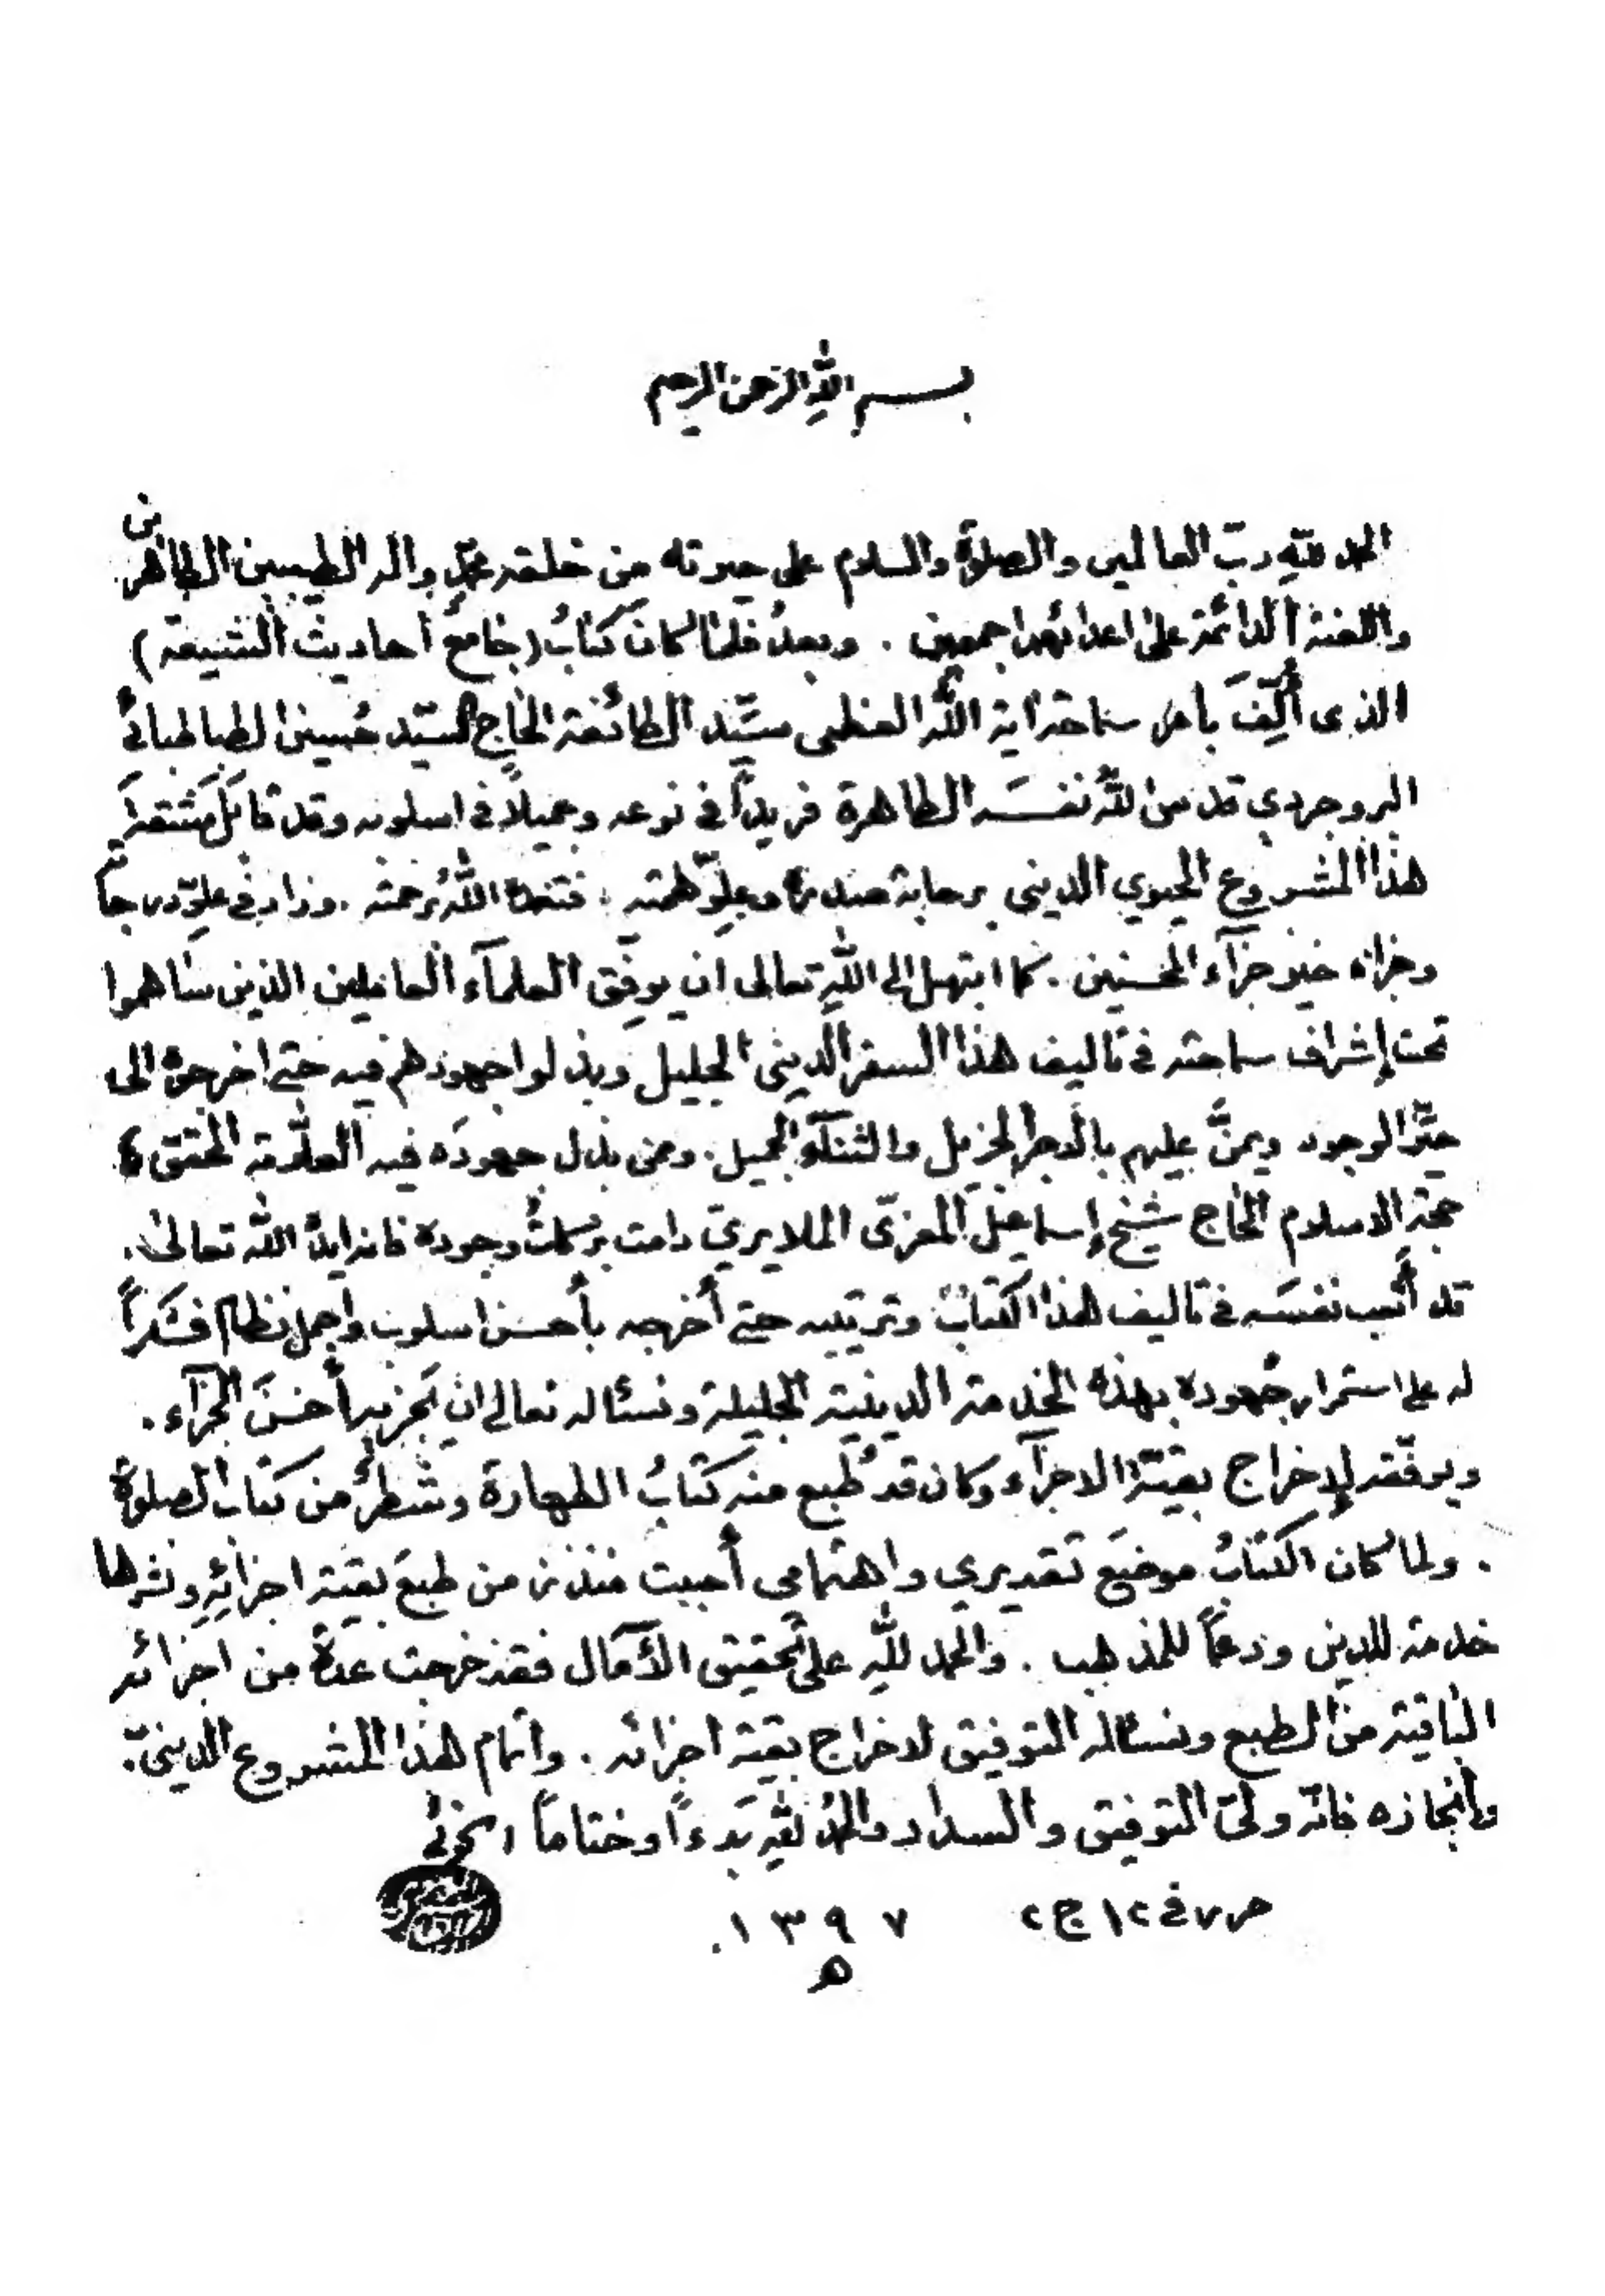 بسم الله الرحمن الرحيم
الحمد لله ربّ العالمين والصلوة والسلام على خيرته من خلقه محمّدٍ واله الطيبين الطاهرين
واللعنة الدائمة على اعدائهم اجمعين . وبعدُ فلمّا كان كتابُ (جامعُ أحاديث الشيعة)
الذى أُلِّفَ بأمر سماحة اية الله العظمى سيّد الطائفة الحاج السيّد حُسين الطباطبائى
البروجردي قدس اللهُ نفسَه الطاهرة فريداً في نوعه وجميلاً في اسلوبه وقد
هذا المشروع الحيوي الديني برحابة صدره وعلوّ همّته . فتغمده اللهُ برحمته . وزاد في علوّ درجاته
وجزاه خير جزآء المحسنين . كما ابتهل إلى اللهِ تعالى ان يوفّق العلمآء العاملين الذين ساهموا
تحت إشراف سماحته في تاليف هذا السفر الديني الجليل وبذلوا جهودهم فيه حتى اخرجوه الى
حيّز الوجود ويمنَّ عليهم بالاجر الجزيل والثنآء الجميل . وممن بذل جهودَه فيه العلّامة المحقق
حجة الاسلام الحاج شيخ إسماعيل المعزّى الملايري دامت بركاتُ وجوده فانه ايده الله تعالى .
قد أتعب نفسَه في تاليف هذا الكتاب وترتيبه حتى أخرجه بأحسن اسلوب واجمل نظام فشكراً
له على استمرار جُهوده بهذه الخدمة الدينية الجليلة ونسئاله تعالى ان يَجزيه أحسنَ الجزآء .
ويوفّقه لإخراج بقيّة الاجزآء وكان قد طُبع منه كتابُ الطهارة وشطرٌ من كتاب الصلوة
. ولما كان الكتابُ موضعَ تقديري واهتمامى أحببت من طبع بقية اجزائِهِ ونشرها
خدمة للدين ودعماً للمذهب . والحمد للهِ على تحقيق الآمال فقد خرجت عدة من اجزائه
الباقية من الطبع ونسئاله التوفيق لاخراج بقية اجزائه . واتمام هذا المشروع الدينيّ .
وإنجازه فانّه وليّ التوفيق والسداد والحمدُ للهِ بَدءاً وختاماً الخوئي
في ١٢ ج٢ ١٣٩٧ .
ه